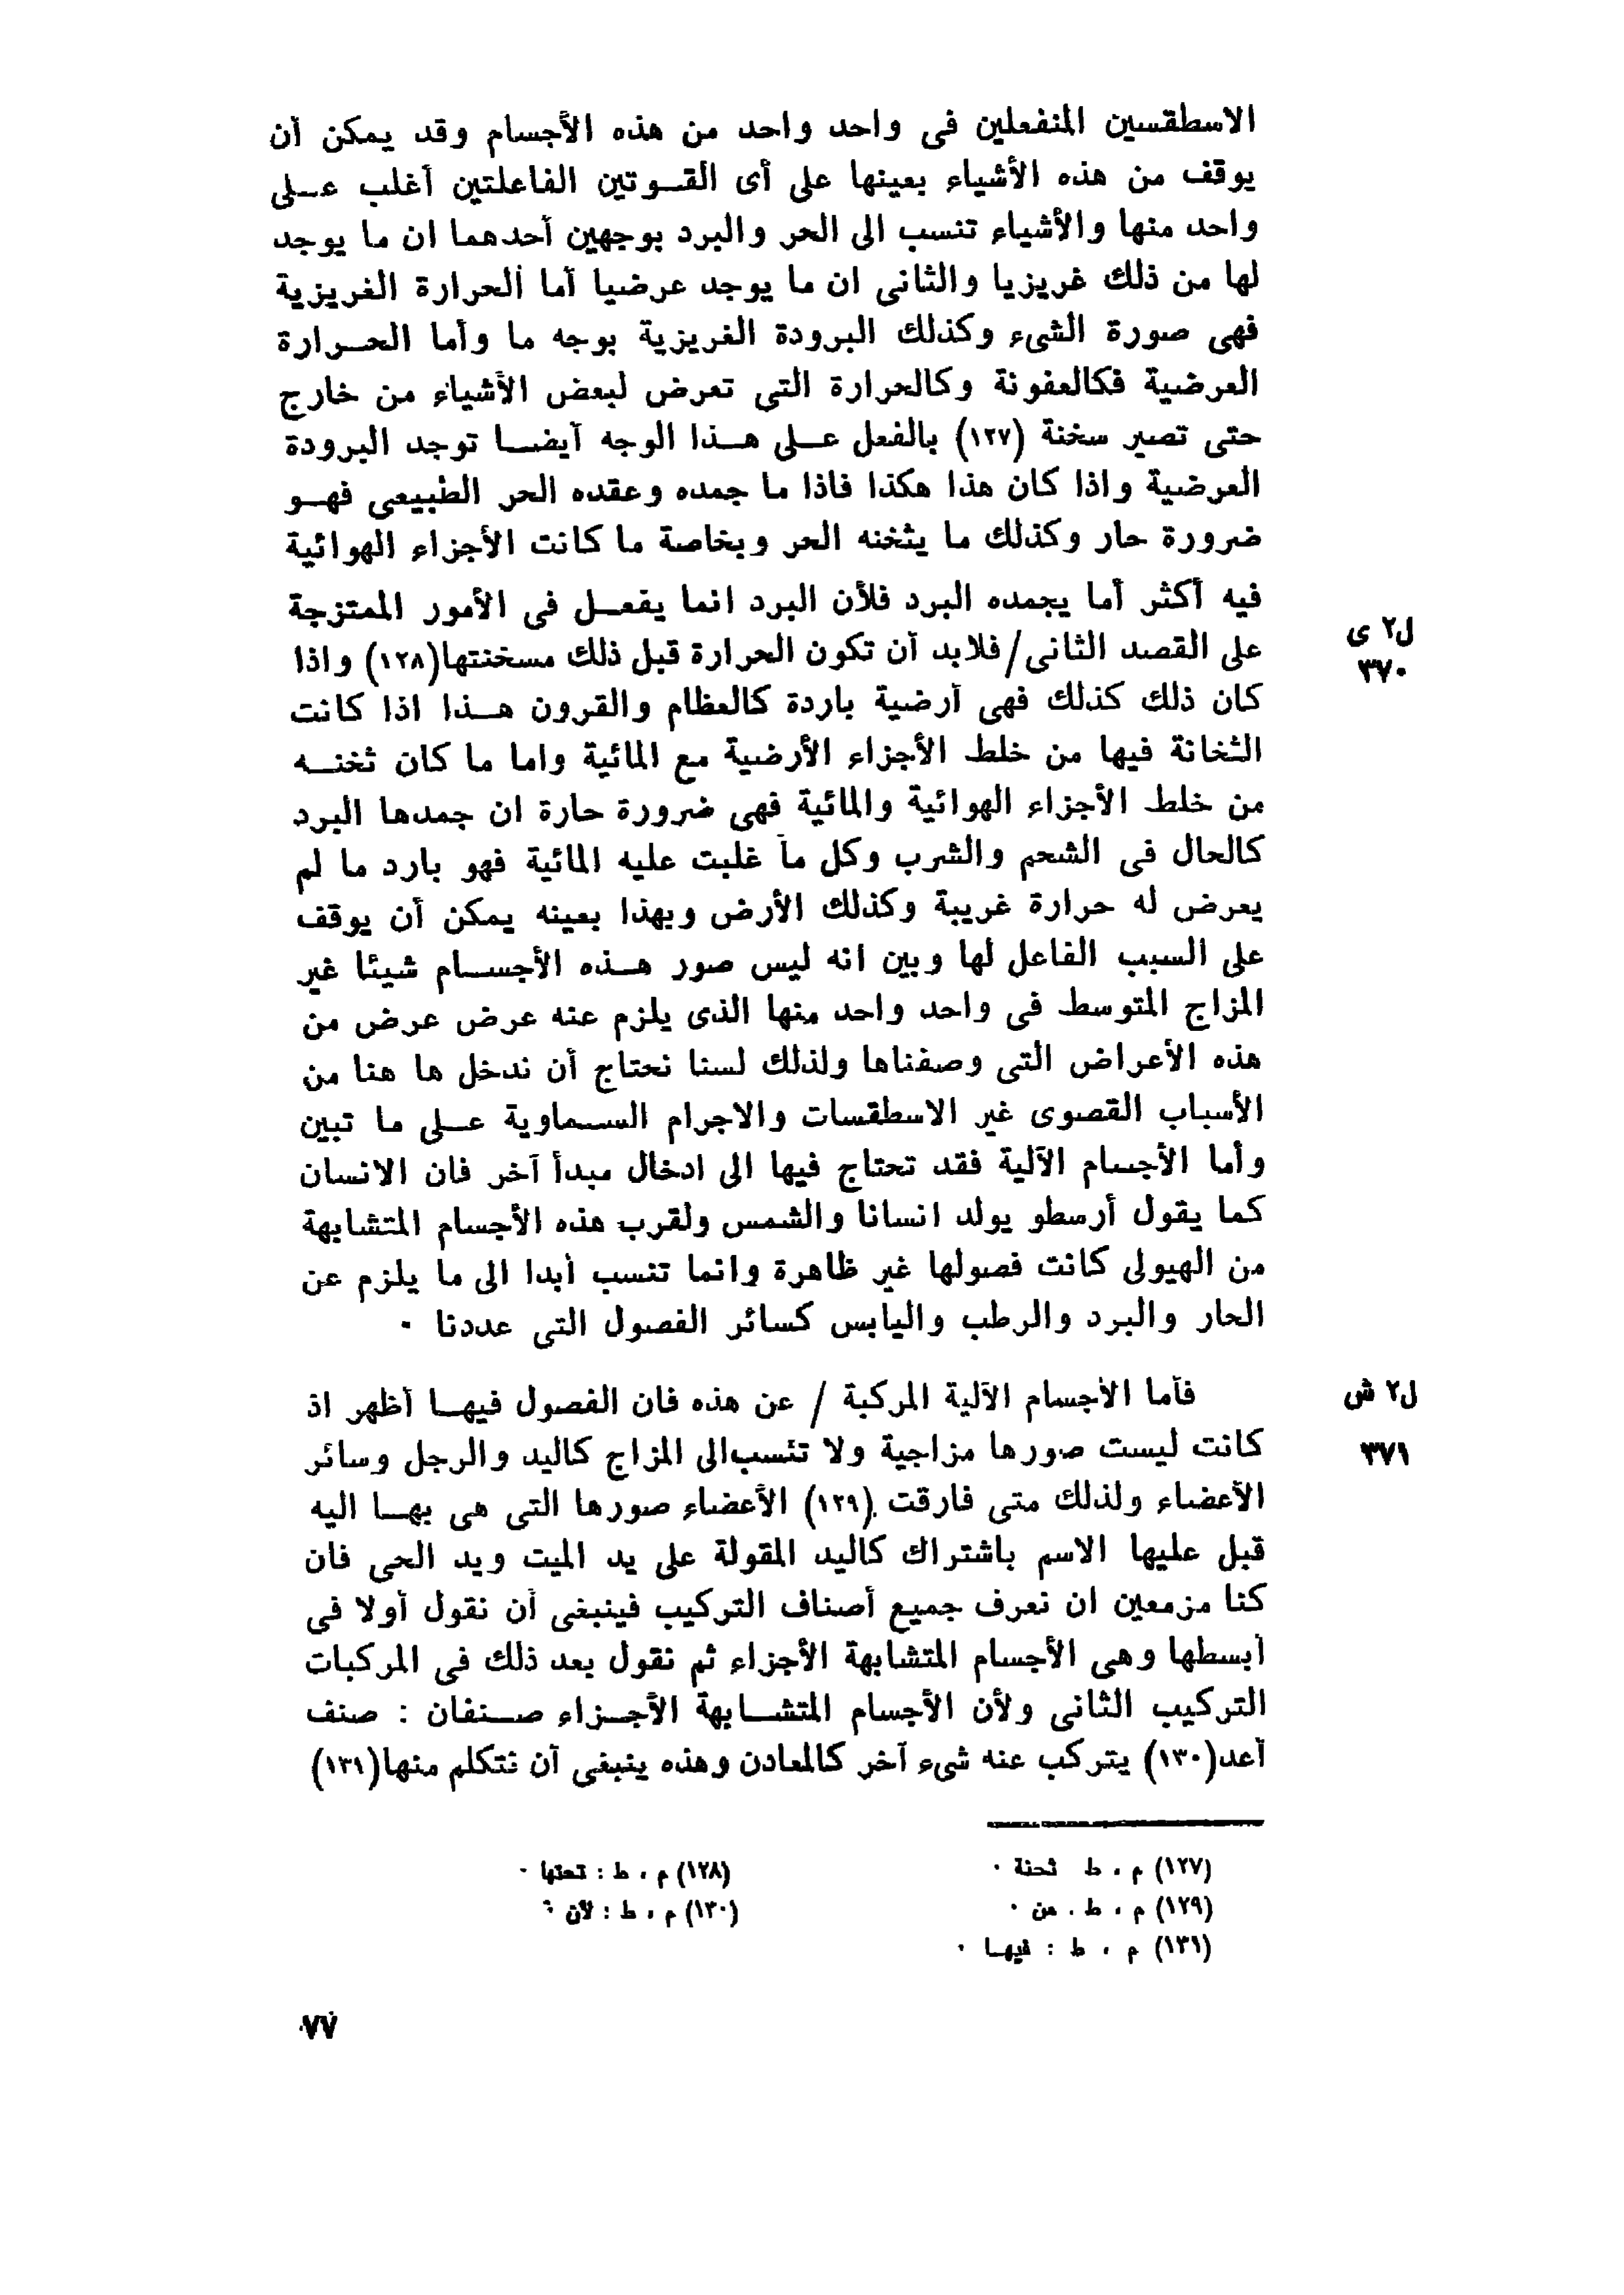 الاسطقسين المنفعلين فى واحد واحد من هذه الأجسام وقد يمكن أن
يوقف من هذه الأشياء بعينها على أى القوتين الفاعلتين أغلب على
واحد منها والأشياء تنسب الى الحر والبرد بوجهين أحدهما ان ما يوجد
لها من ذلك غريزيا والثانى ان ما يوجد عرضيا أما الحرارة الغريزية
فهى صورة الشىء وكذلك البرودة الغريزية بوجه ما وأما الحرارة
العرضية فكالعفونة وكالحرارة التى تعرض لبعض الأشياء من خارج
حتى تصير سخنة (١٢٧) بالفعل على هذا الوجه أيضا توجد البرودة
العرضية واذا كان هذا هكذا فاذا ما جمده وعقده الحر الطبيعى فهو
ضرورة حار وكذلك ما يثخنه الحر وبخاصة ما كانت الأجزاء الهوائية
فيه أكثر أما يجمده البرد فلأن البرد انما يفعل فى الأمور الممتزجة
على القصد الثانى/فلابد أن تكون الحرارة قبل ذلك مسخنتها(١٢٨) واذا
ل٢ ى
٣٧٠
كان ذلك كذلك فهى أرضية باردة كالعظام والقرون هذا اذا كانت
الثخانة فيها من خلط الأجزاء الأرضية مع المائية واما ما كان ثخنه
من خلط الأجزاء الهوائية والمائية فهى ضرورة حارة ان جمدها البرد
كالحال فى الشحم والشرب وكل ما غلبت عليه المائية فهو بارد ما لم
يعرض له حرارة غريبة وكذلك الأرض وبهذا بعينه يمكن أن يوقف
على السبب الفاعل لها وبين انه ليس صور هذه الأجسام شيئا غير
المزاج المتوسط فى واحد واحد منها الذى يلزم عنه عرض عرض من
هذه الأعراض التى وصفناها ولذلك لسنا نحتاج أن ندخل ها هنا من
الأسباب القصوى غير الاسطقسات والاجرام السماوية على ما تبين
وأما الأجسام الآلية فقد تحتاج فيها الى ادخال مبدأ آخر فان الانسان
كما يقول أرسطو يولد انسانا والشمس ولقرب هذه الأجسام المتشابهة
من الهيولى كانت فصولها غير ظاهرة وانما تنسب أبدا الى ما يلزم عن
الحار والبرد والرطب واليابس كسائر الفصول التى عددنا .
فأما الأجسام الآلية المركبة / عن هذه فان الفصول فيها أظهر اذ
ل٢ ش
كانت ليست صورها مزاجية ولا تنسب الى المزاج كاليد والرجل وسائر
٣٧١
الأعضاء ولذلك متى فارقت (١٢٩) الأعضاء صورها التى هى بها اليه
قبل عليها الاسم باشتراك كاليد المقولة على يد الميت ويد الحى فان
كنا مزمعين ان نعرف جميع أصناف التركيب فينبغى أن نقول أولا فى
أبسطها وهى الأجسام المتشابهة الأجزاء ثم نقول بعد ذلك فى المركبات
التركيب الثانى ولأن الأجسام المتشابهة الأجزاء صنفان : صنف
أعد(١٣٠) يتركب عنه شىء آخر كالمعادن وهذه ينبغى أن نتكلم منها(١٣١)
(١٢٧) م ، ط ثحنة .
(١٢٨) م ، ط : تحتها .
(١٢٩) م ، ط . من .
(١٣٠) م ، ط : لأن .
(١٣١) م ، ط : فيها .
٧٧